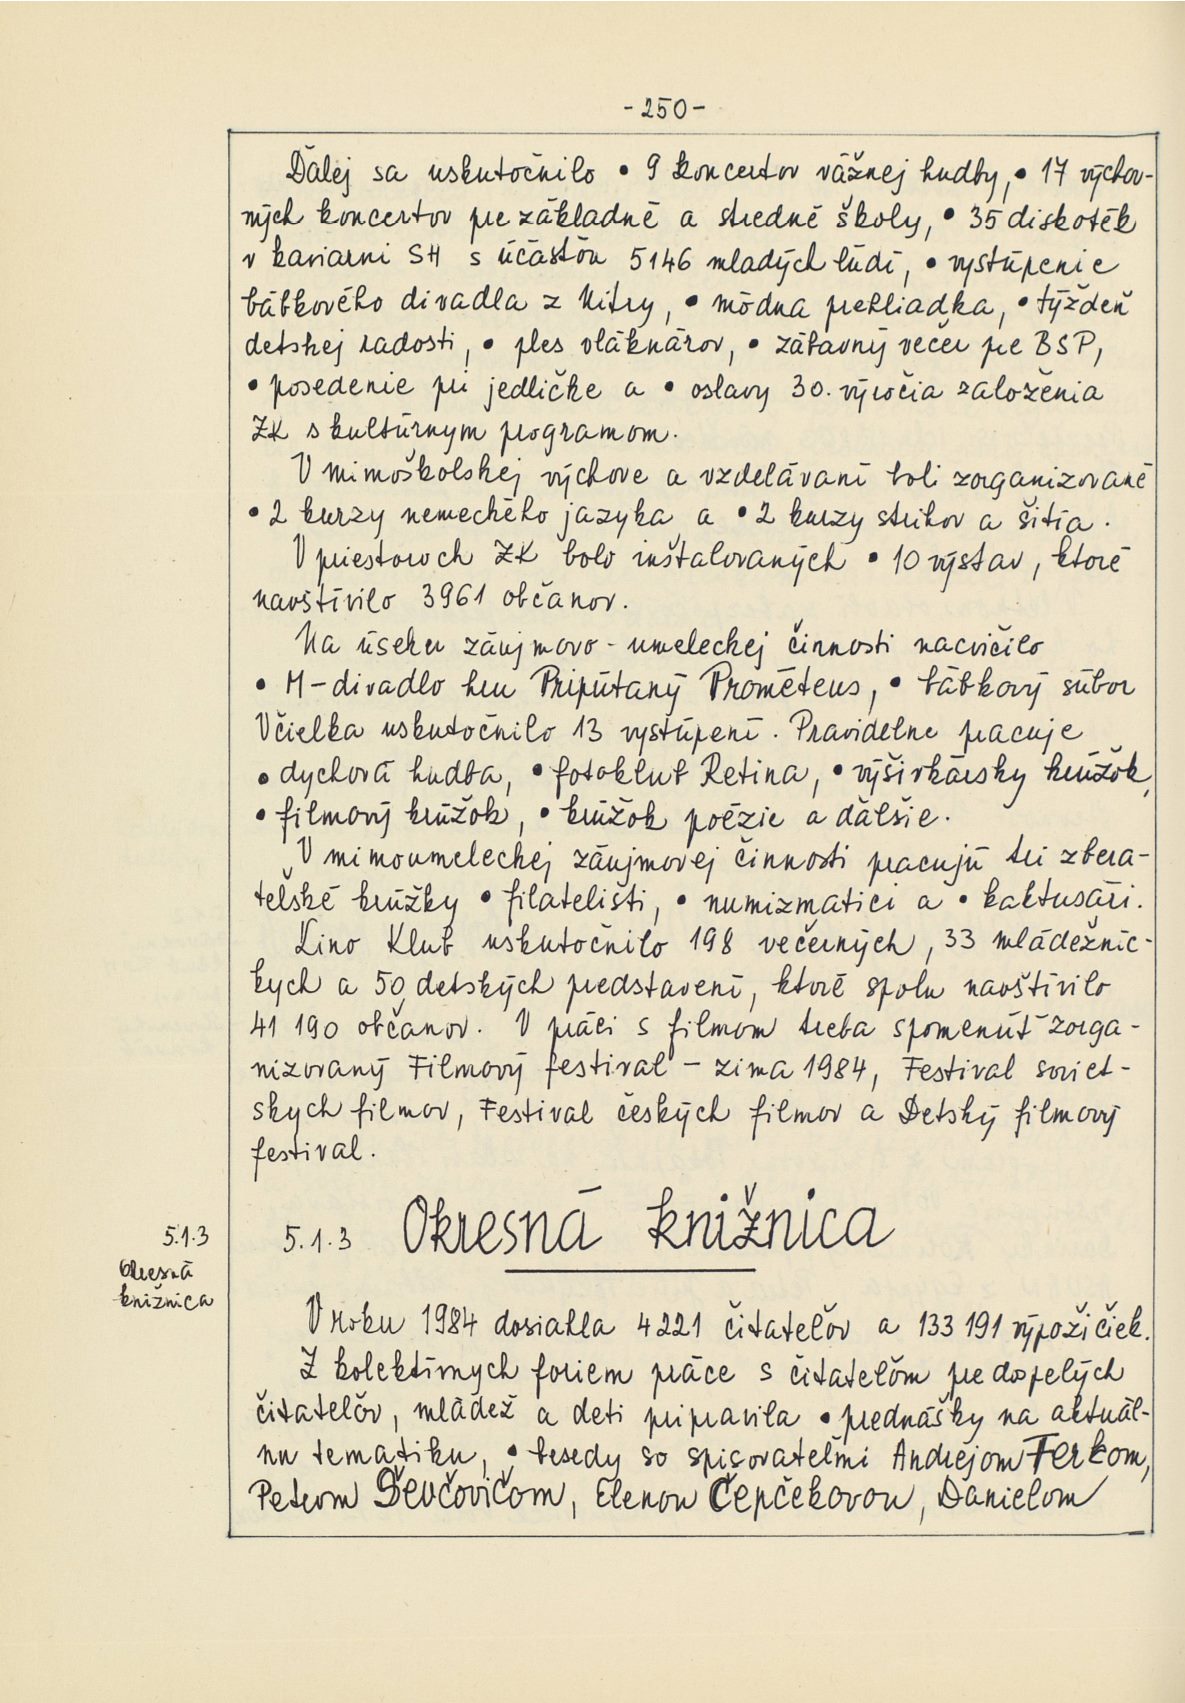 -250-
Ďalej sa uskutočnilo • 9 koncertov vážnej hudby, • 17 výchov-
ných koncertov pre základné a stredné školy, • 35 diskoték
v kaviarni SH s účasťou 5146 mladých ľudí, • vystúpenie
bábkového divadla z Nitry, • módna prehliadka, • týždeň
detskej radosti, • ples vláknárov, • zábavný večer pre BSP,
• posedenie pri jedličke a • oslavy 30. výročia založenia
ZK s kultúrnym programom.
V mimoškolskej výchove a vzdelávaní boli zorganizované
• 2 kurzy nemeckého jazyka a • 2 kurzy strihov a šitia.
V priestoroch ZK bolo inštalovaných • 10 výstav, ktoré
navštívilo 3961 občanov.
Na úseku záujmovo - umeleckej činnosti nacvičilo
• M-divadlo hru Pripútaný Prométeus, • bábkový súbor
Včielka uskutočnilo 13 vystúpení. Pravidelne pracuje
• dychová hudba, • fotoklub Retina, • výšivkársky krúžok,
• filmový krúžok, • krúžok poézie a ďalšie.
V mimoumeleckej záujmovej činnosti pracujú tri zbera-
teľské krúžky • filatelisti, • numizmatici a • kaktusári.
Kino Klub uskutočnilo 198 večerných, 33 mládežníc-
kych a 50 detských predstavení, ktoré spolu navštívilo
41 190 občanov. V práci s filmom treba spomenúť zorga-
nizovaný Filmový festival - zima 1984, Festival soviet-
skych filmov, Festival českých filmov a Detský filmový
festival.
5.1.3
Okresná
knižnica
5.1.3 Okresná knižnica
V roku 1984 dosiahla 4221 čitateľov a 133 191 výpožičiek.
Z kolektívnych foriem práce s čitateľom pre dospelých
čitateľov, mládež a deti pripravila • prednášky na aktuál-
nu tematiku, • besedy so spisovateľmi Andrejom Ferkom,
Petrom Ševčovičom, Elenou Čepčekovou, Danielom